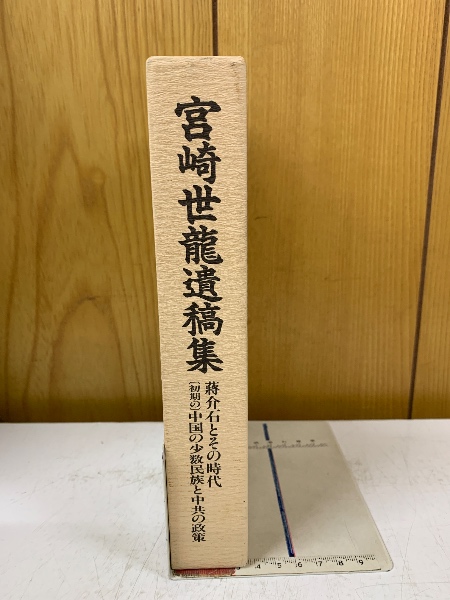 宮崎世龍遺稿集
蔣介石とその時代
〔初期の〕中国の少数民族と中共の政策
4 5 6 7 8 9